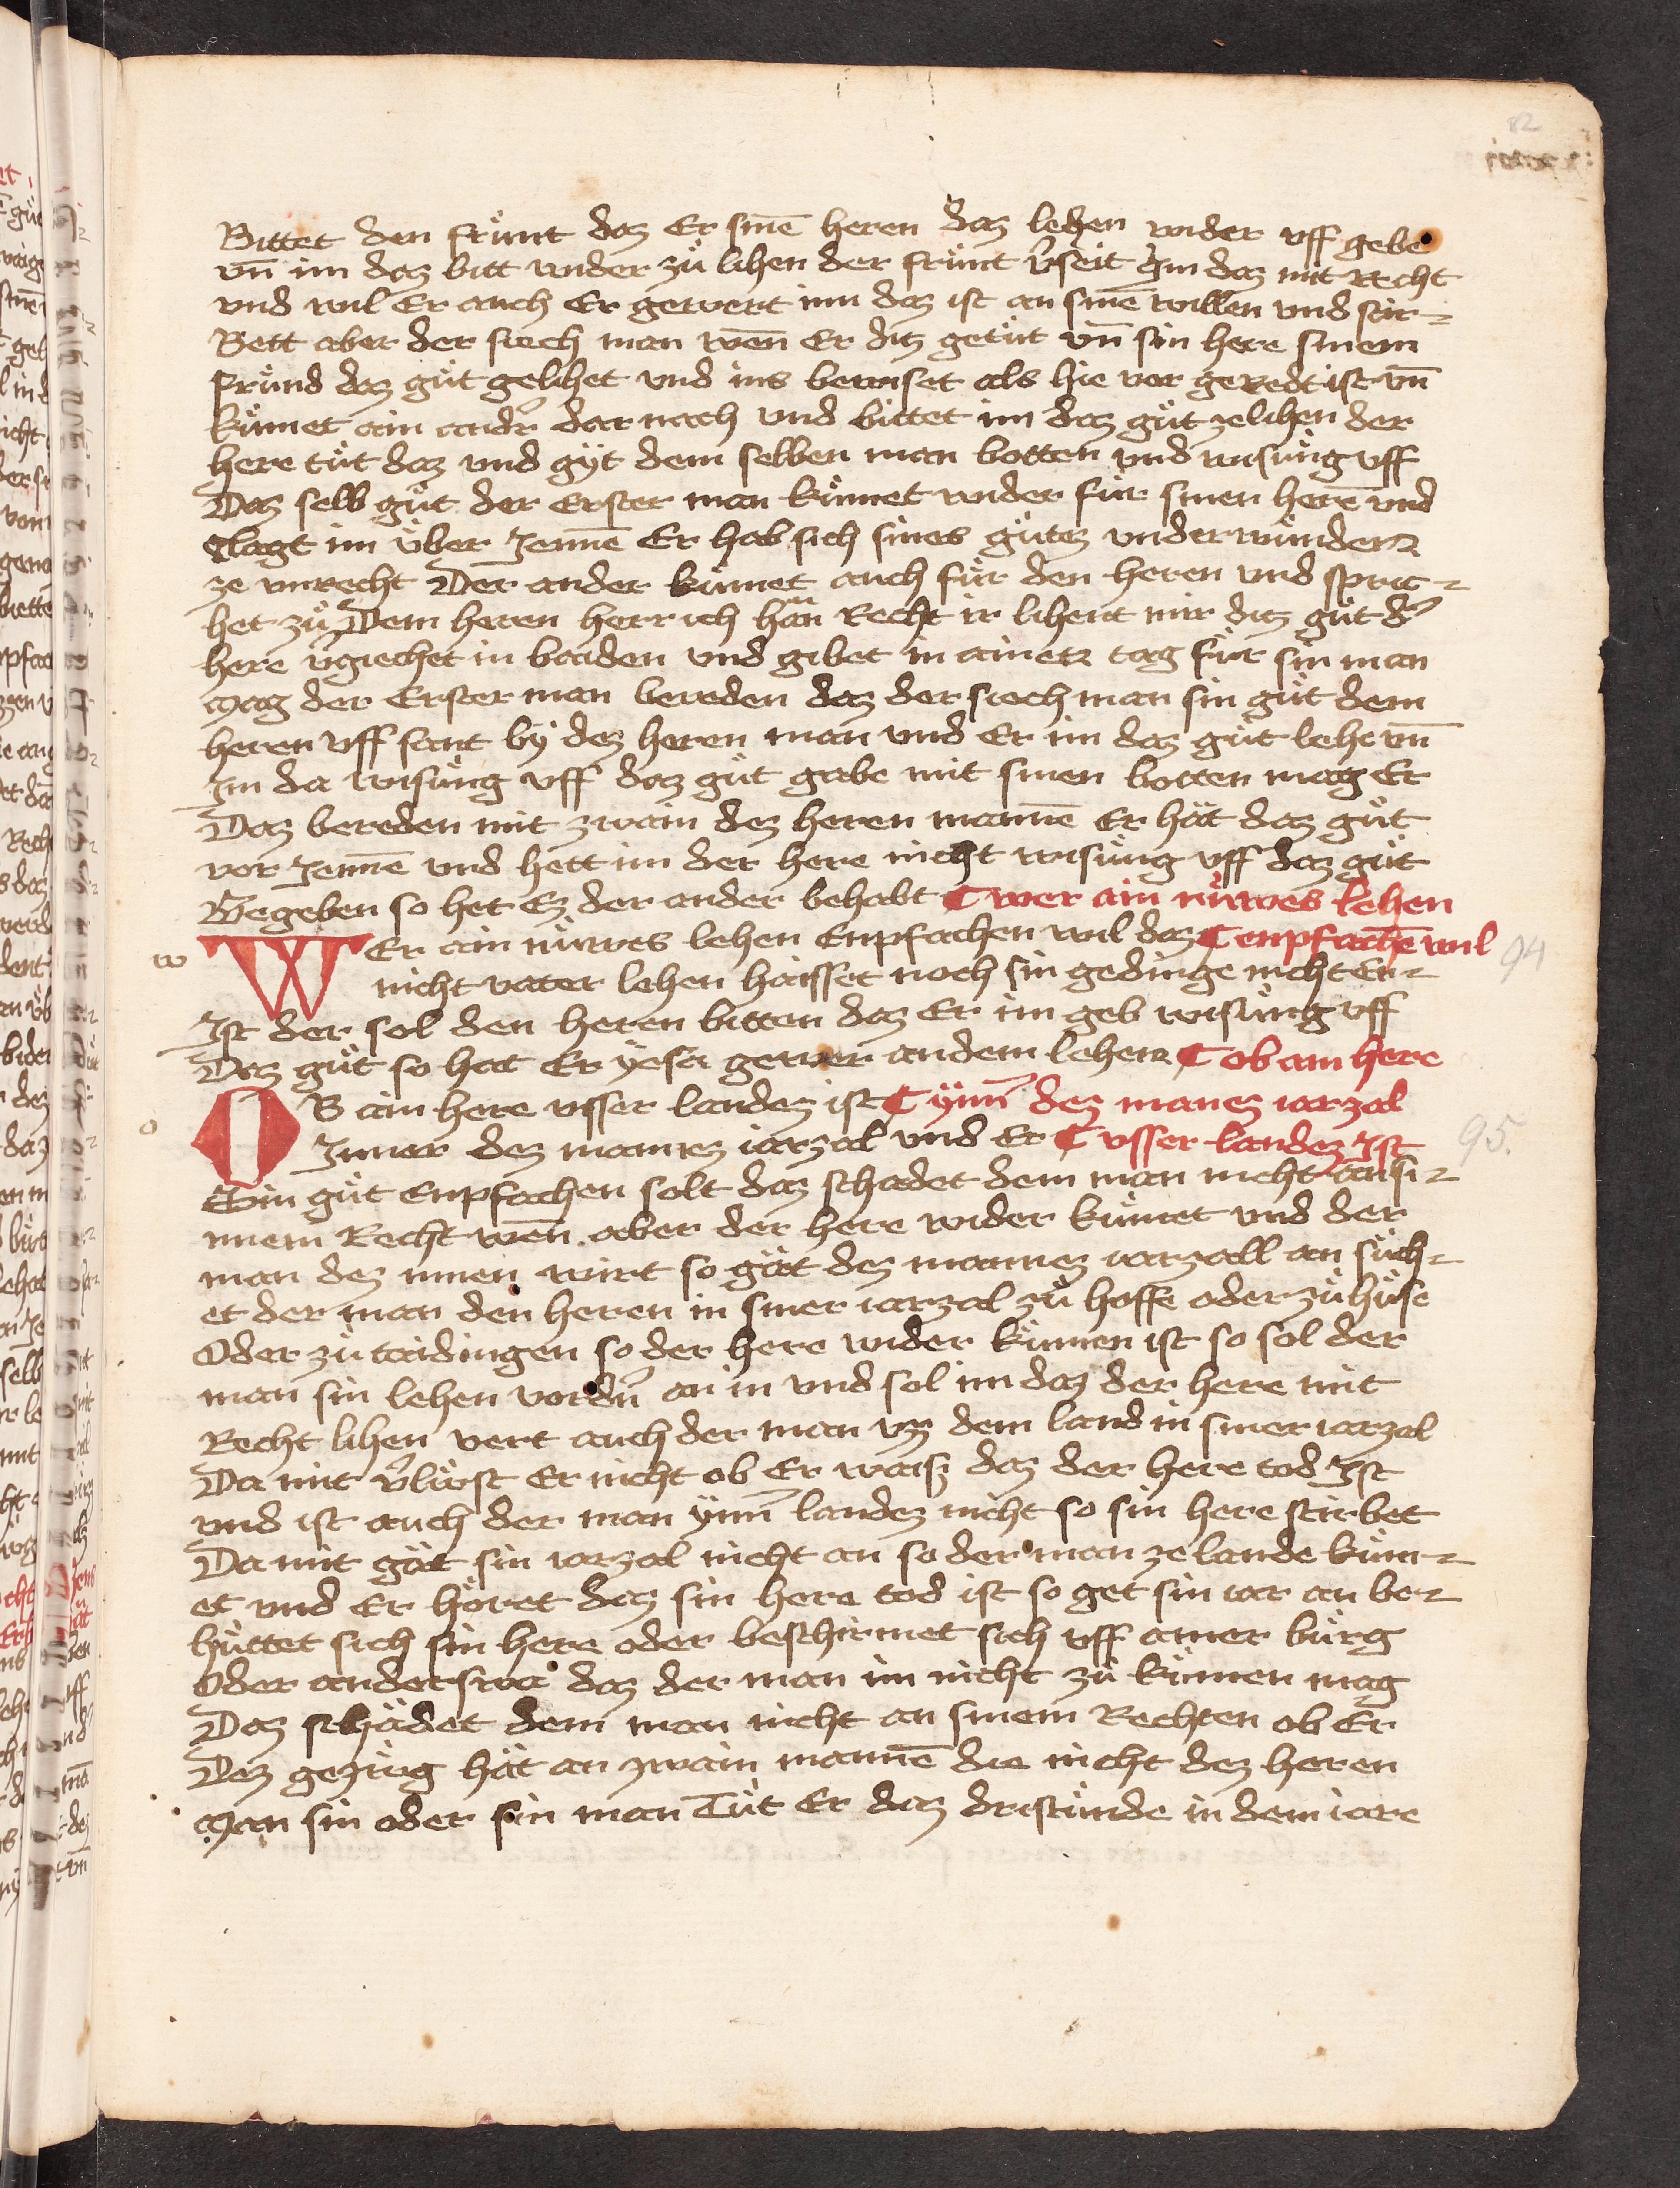 82
Bittet den frúnt daz Er sinē heren daz lehen wider vff gebe
vn̄ im daz bitt wider zů lihen der frúnt v̉seit jm daz mit Recht
vnd wil Er auch Er gewert inn daz ist an sinē willen vnd stir-
Bett aber der siech man wen̄ Er ditz getůt vn̄ sin here sinem
frúnd daz gůt gelihet vnd ins bewiset als hie vor geredt ist vn̄
kúmet ain andr̉ dar nach vnd bittet im daz gůt ze lihen der
here tůt daz vnd gÿt dem selben man botten vnd wisúng vff
Daz selb gůt der Erster man kúmet wider fúr sinen herē vnd
Clagt im úber Jennē Er hab sich sines gůtez vnderwúnden
ze vnrecht Der ander kúmet auch fúr den heren vnd spric-
het zů Dem heren herr ich hān Recht ir lihent mir ditz gůt d̉
here v̉giechet in baiden vnd gibet in ainen tag fúr sin man
Mag der Erster man bereden daz der siech man sin gůt dem
heren vff sant bÿ dez heren man vnd Er im daz gůt lehe vn̄
Im da wisúng vff daz gůt gabe mit sinen botten mag Er
Daz bereden mit zwain dez heren mannē Er hät daz gůt
vor Jennē vnd hett im der here nicht wisúng vff daz gůt
Gegeben so het Ez der ander behabt ¶ wer ain núwes lehen
w
WEr ain núwes lehen Enpfachen wil daz ¶ enpfachē wil
94
nicht vater lehen haisset noch sin gedinge nicht En-
Ist der sol den heren bitten daz Er im geb wisúng vff
Daz gůt so hat Er ÿesa gewer an dem lehen ¶ ob ain here
o
OB ain here vsser landez ist ¶ ÿnn̄ dez manez iarzal
Inner dez mannez iarzal vnd Er ¶ vsser landez Ist
95.
Sin gůt Enpfachen solt daz schadet dem man nicht an si-
nnem Recht wen̄ aber der here wider kúmet vnd der
man dez innen wirt so gät dez mannez iarzall an sůch-
et der man den heren in siner iarzal zů hoffe oder zů húse
Oder zů taidingen so der here wider kúmen ist so sol der
man sin lehen vordn̉ an in vnd sol im daz der here mit
Recht lihen vert auch der man vz dem land in siner iarzal
Da mit v̉lúst Er nicht ob Er waiß daz der here tod Ist
vnd ist auch der man ÿnn̄ landez nicht so sin here stirbet
Da mit gät sin iarzal nicht an so der man ze lande kúm-
et vnd Er höret daz sin here tod ist so get sin iar an be-
húttet sich sin here oder beschirmet sich vff ainer búrg
Oder anderswa daz der man im nicht zů kúmen mag
Daz schädet dem man nicht an sinem Rechten ob Er
Dez gezúg hät an zwain mannē die nicht dez heren
Man sin oder sin man Tůt Er daz dristúnde in dem iare